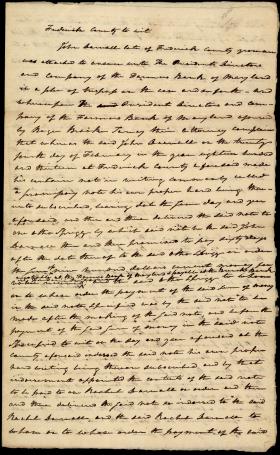 Frederick County to wit
John Darnall late of Frederick County yeoman
was attached to answer unto The President Directors
and Company of the Farmers Bank of Maryland
in a plea of trespass on the case and so forth - and
whereupon the said President directors and com
pany of the Farmers Bank of Maryland afsaid
by Roger Brooke Taney their attorney complain
that whereas the said John Darnall on the twenty
fourth day of February in the year eighteen hundred
and thirteen at Frederick County aforesaid made
his certain note in writing commonly called
a promissory note his own proper hand being there
unto subscribed, bearing date the same day and year
aforesaid, and then and there delivered the said note to
one by which said note he the said John
Darnall then and there promised to pay sixty days
after the date thereof to the said
dollars
on to whose order the payment of the said sum of money
in the said note specified was by the said note to be
made after the making of the said note, and before the
payment of the said sum of money in the said note
specified to wit on the day and year aforesaid at the
county aforesaid endorsed the said note his own proper
hand writing being thereon subscribed and by that
indorsement appointed the contents of the said note
to be paid to one Rachel Darnall or order and then
and there delivered the said note so indorsed to the said
Rachel Darnall, and the said Rachel Darnall to
whom or to whose order the payment of the said